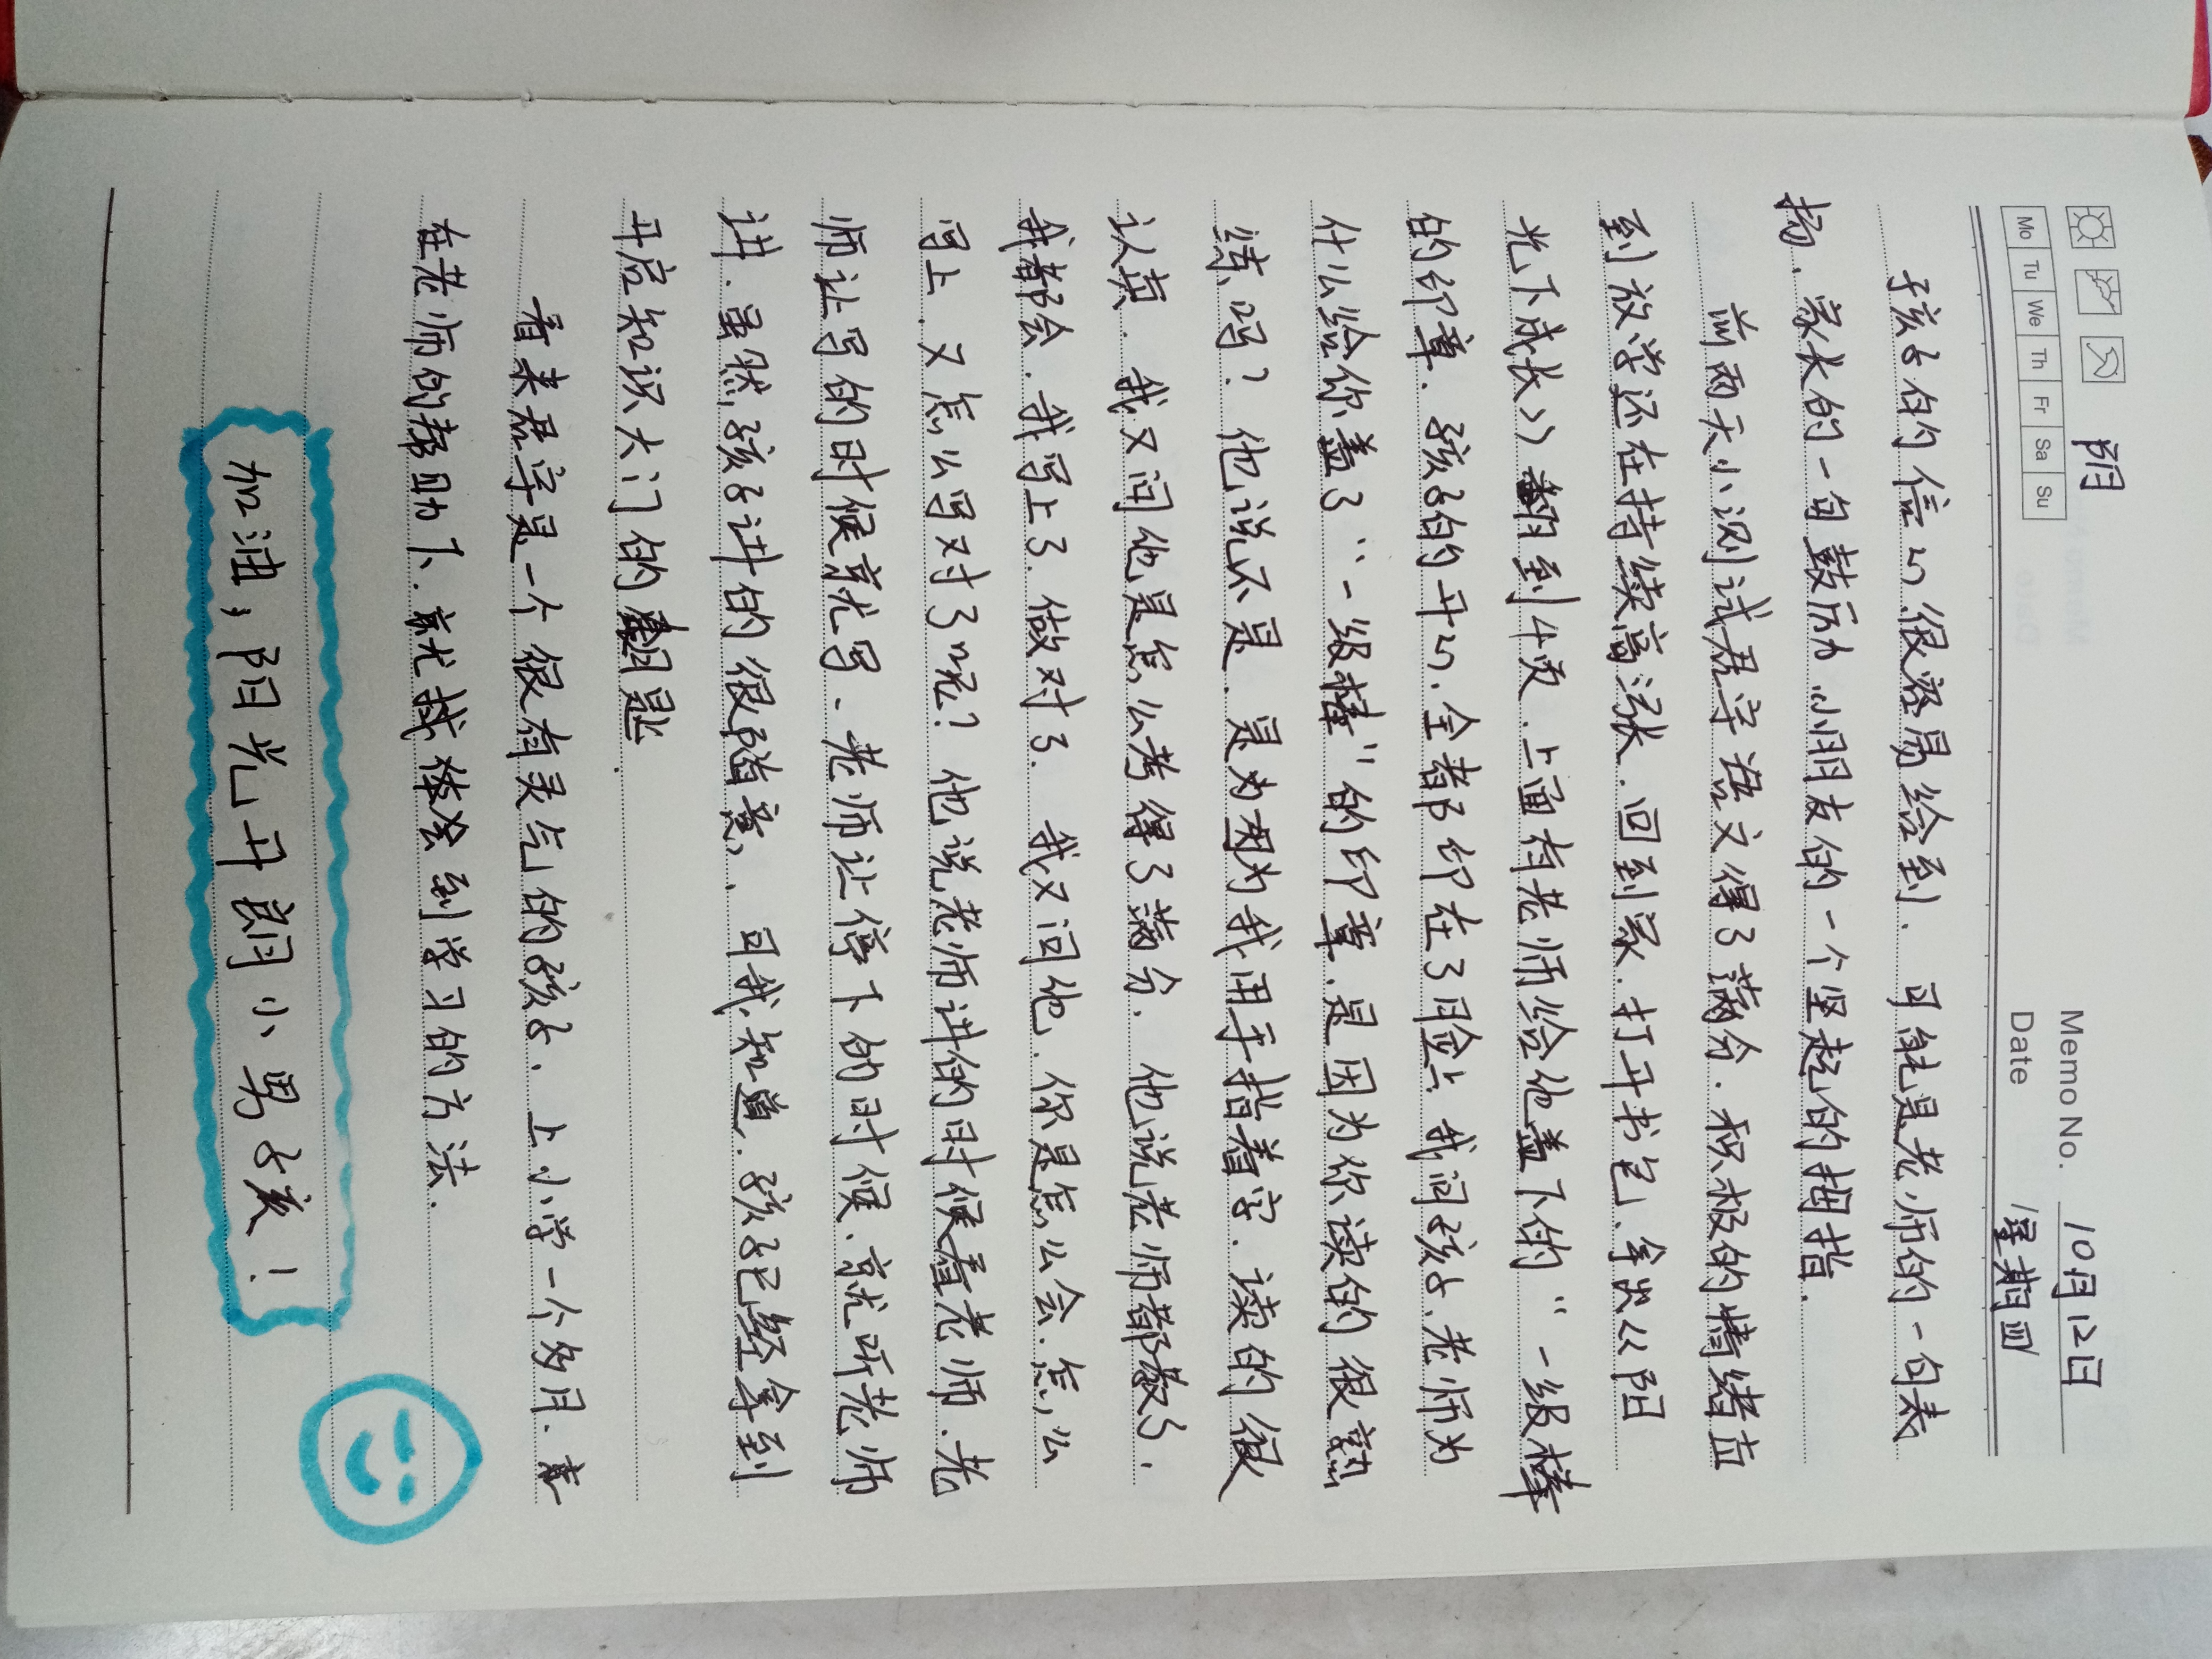 阴
Memo No.
10月12日
Mo Tu We Th Fr Sa Su
Date
星期四
孩子的信心很容易给到、可能是老师的一句表
扬、家长的一句鼓励、小朋友的一个竖起的拇指.
前两天小测试君宇语文得了满分.积极的情绪直
到放学还在持续高涨.回到家.打开书包.拿出《阳
光下成长》翻到4页.上面有老师给他盖下的“一级棒
的印章.孩子的开心.全都印在了脸上.我问孩子.老师为
什么给你盖了“一级棒”的印章.是因为你读的很熟
练吗?他说不是.是为因为我用手指着字.读的很
认真.我又问他是怎么考得了满分.他说老师都教了.
我都会.我写上了.做对了.我又问他.你是怎么会.怎么
写上.又怎么写对了呢?他说老师讲的时候看老师.老
师让写的时候就写、老师让停下的时候.就听老师
讲.虽然,孩子讲的很随意、可我知道.孩子已经拿到
开启知识大门的翻匙.
看来君宇是一个很有灵气的孩子.上小学一个多月.
在老师的帮助下.就能体会到学习的方法.
加油,阳光开朗小男孩!